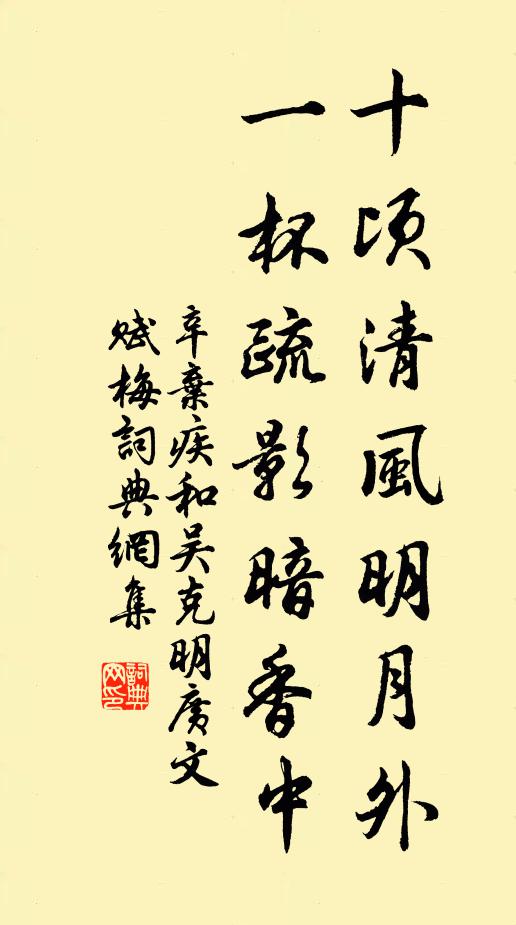 十頃清風明月外
一杯疏影暗香中
辛棄疾和吳克明廣文
賦梅詞典網集
詞典
网印